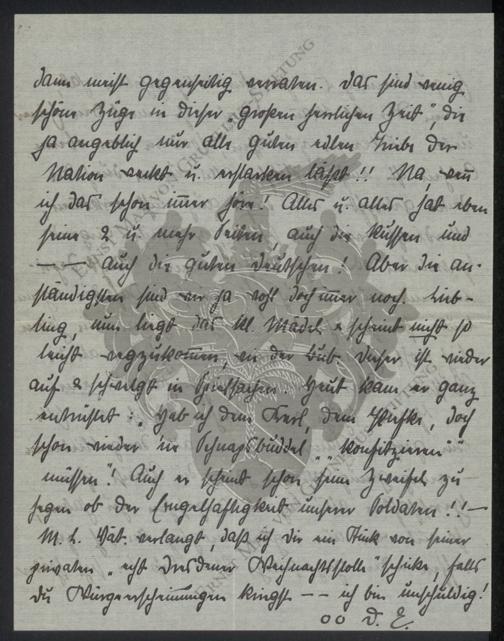 dann meist gegenseitig verraten. Das sind wenig
schöne Züge in dieser „großen herrlichen Zeit", die
ja angeblich nur alle guten edlen Triebe der
Nation weckt u. erstarken läßt!! Na, wenn
ich das schon im̅er höre! Alles u. alles hat eben
seine 2 u. mehr Seiten, auch die Russen und
—— auch die guten Deutschen! Aber die an-
ständigsten sind wir ja wohl doch im̅er noch. Lieb-
ling, nun liegt das kl. Mädel & scheint nicht so
leicht wegzukom̅en, wie der Bub. Dieser ist wieder
auf & schwelgt in Heussachen. Heut kam er ganz
entrüstet: „Hab ich dem Kerl, dem Piefke, doch
schon wieder 'ne Schnapsbuddel „konfitzieren"
müssen"! Auch er scheint schon seine Zweifel zu
hegen ob der Engelhaftigkeit unserer Soldaten!!—
M. l. Vat. verlangt, daß ich Dir ein Stück von seiner
privaten „echt Dresdener Weihnachtsstolle" schicke, falls
Du Würgerscheinungen kriegst —— ich bin unschuldig!
oo D. E.
ERNST MAX VON GRUNELIUS-STIFTUNG